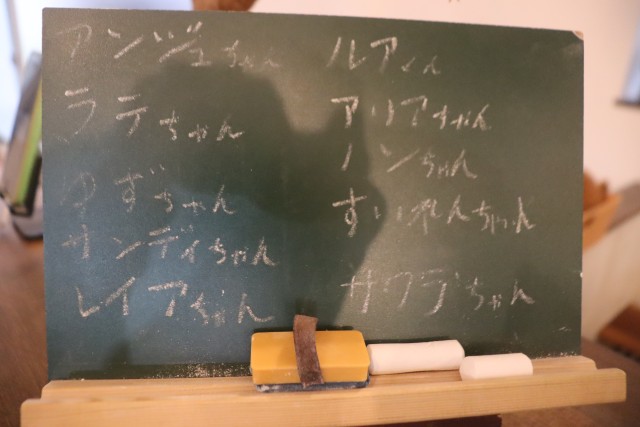 アンジュちゃん
ラテちゃん
ゆずちゃん
サンディちゃん
レイアちゃん
ルアくん
アリアちゃん
ノンちゃん
すいれんちゃん
サワデちゃん